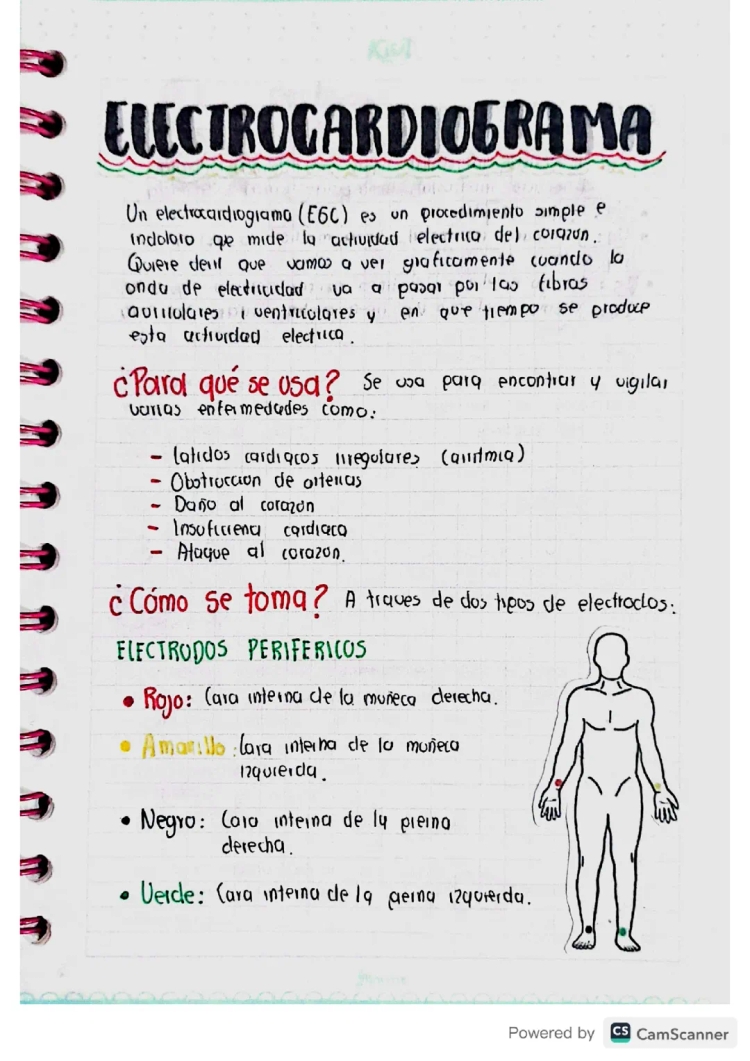 ELECTROCARDIOGRAMA
Un electrocardiograma (EGC) es un procedimiento simple e
indoloro que mide la actividad electrica del corazon.
Quiere decir que vamos a ver graficamente cuando la
onda de electricidad va a pasar por las fibras
auriculares i ventriculares y en que tiempo se produce
esta actividad electrica.
¿Para qué se usa? Se usa para encontrar y vigilar
varias enfermedades como:
- latidos cardiacos irregulares (arritmia)
- Obstruccion de arterias
- Daño al corazon
- Insuficiencia cardiaca
- Ataque al corazon.
¿Cómo se toma? A traves de dos tipos de electrodos:
ELECTRODOS PERIFERICOS
• Rojo: Cara interna de la muñeca derecha.
• Amarillo: Cara interna de la muñeca
izquierda.
• Negro: Cara interna de la pierna
derecha.
• Verde: Cara interna de la pierna izquierda.
Powered by CS CamScanner